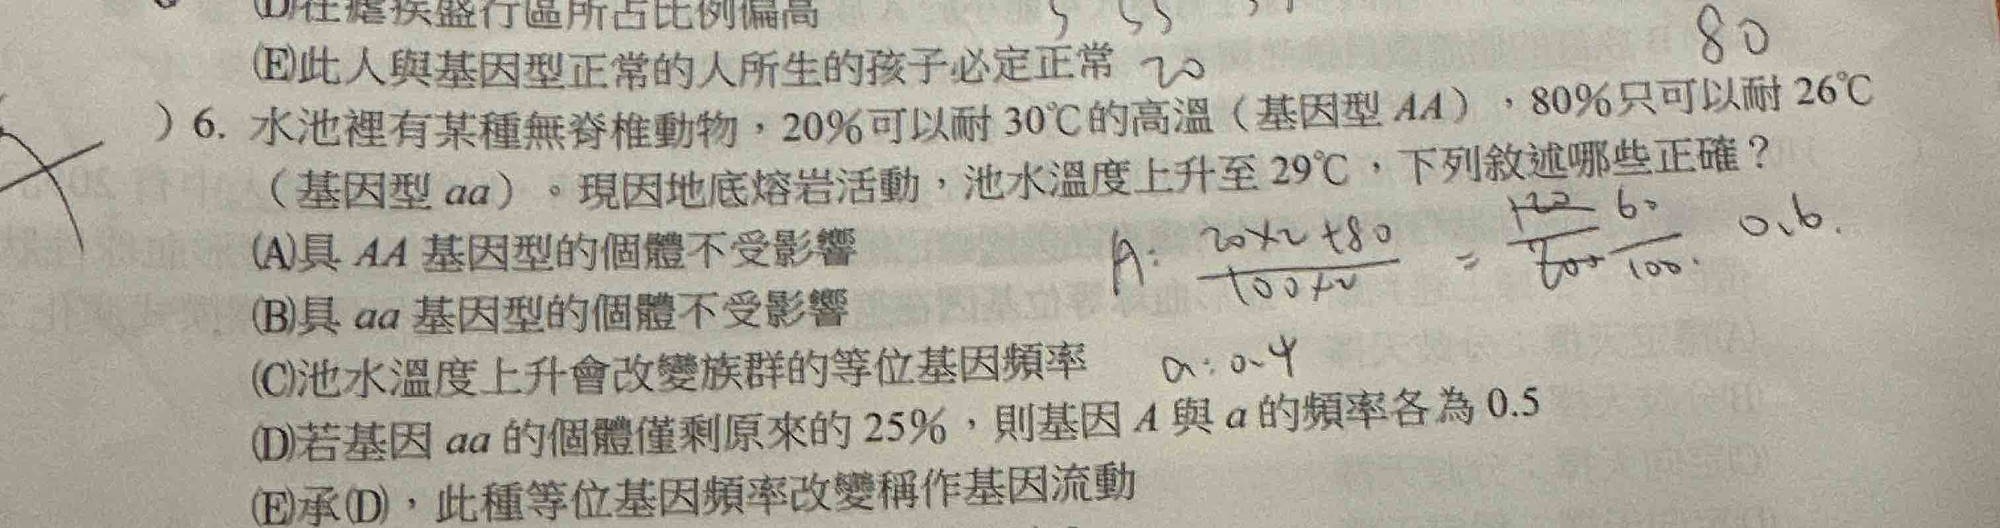 (D)在瘧疾盛行區所占比例偏高
(E)此人與基因型正常的人所生的孩子必定正常 20
80
)6. 水池裡有某種無脊椎動物，20%可以耐 30℃的高溫（基因型 AA），80%只可以耐 26℃
（基因型 aa）。現因地底熔岩活動，池水溫度上升至 29℃，下列敘述哪些正確？
(A)具 AA 基因型的個體不受影響
A: 20×2+80 / 100×2 = 60 / 100 0.6.
(B)具 aa 基因型的個體不受影響
(C)池水溫度上升會改變族群的等位基因頻率 a: 0.4
(D)若基因 aa 的個體僅剩原來的 25%，則基因 A 與 a 的頻率各為 0.5
(E)承(D)，此種等位基因頻率改變稱作基因流動